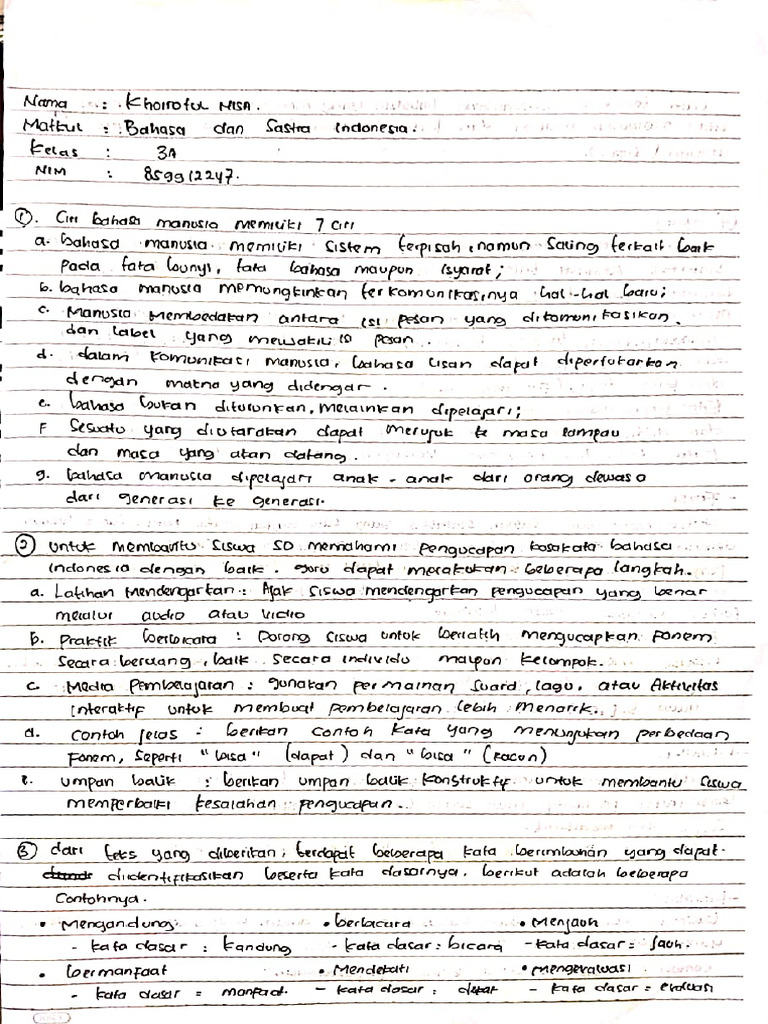 Nama : Khoirotul NISA.
Matkul : Bahasa dan Sastra Indonesia.
Kelas : 3A
NIM : 859912247.
①. Ciri bahasa manusia memiliki 7 ciri
a. bahasa manusia memiliki sistem terpisah, namun saling terkait baik
pada tata bunyi, tata bahasa maupun isyarat;
b. bahasa manusia memungkinkan terkomunikasinya hal-hal baru;
c. Manusia Membedakan antara isi pesan yang dikomunikasikan.
dan label yang mewakili isi pesan.
d. dalam komunikasi manusia, bahasa lisan dapat dipertukarkan
dengan makna yang didengar.
e. bahasa bukan diturunkan, melainkan dipelajari;
F Sesuatu yang diutarakan dapat merujuk ke masa lampau
dan masa yang akan datang.
g. bahasa manusia dipelajari anak-anak dari orang dewasa
dari generasi ke generasi.
② untuk membantu siswa SD memahami pengucapan kosakata bahasa
indonesia dengan baik. guru dapat melakukan beberapa langkah.
a. Latihan Mendengarkan : Ajak siswa mendengarkan pengucapan yang benar
melalui audio atau vidio
b. Praktik berbicara : Dorong siswa untuk berlatih mengucapkan fonem
secara berulang, baik secara individu maupun kelompok.
c. Media Pembelajaran : gunakan permainan suara, lagu, atau Aktivitas
interaktif untuk membuat pembelajaran lebih menarik.
d. contoh jelas : berikan contoh kata yang menunjukan perbedaan
fonem, seperti "bisa" (dapat) dan "bisa" (racun)
e. umpan balik : berikan umpan balik konstruktif untuk membantu siswa
memperbaiki kesalahan pengucapan.
③ dari teks yang diberikan, terdapat beberapa kata berimbuhan yang dapat
diidentifikasikan beserta kata dasarnya. berikut adalah beberapa
Contohnya.
• Mengandung • berbicara • Menjauh
- kata dasar : kandung - kata dasar = bicara - kata dasar = jauh.
• bermanfaat • Mendekati • mengevaluasi
- kata dasar = manfaat. - kata dasar : dekat - kata dasar = evaluasi